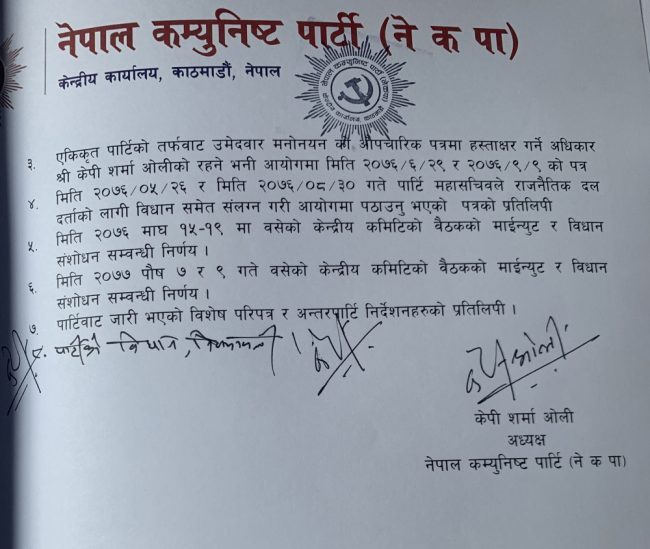 नेपाल कम्युनिष्ट पार्टी (ने क पा)
केन्द्रीय कार्यालय, काठमाडौं, नेपाल
३. एकिकृत पार्टिको तर्फवाट उमेदवार मनोनयन को औपचारिक पत्रमा हस्ताक्षर गर्ने अधिकार
श्री केपी शर्मा ओलीको रहने भनी आयोगमा मिति २०७६/६/२९ र २०७६/९/९ को पत्र
४. मिति २०७६/०५/२६ र मिति २०७६/०८/३० गते पार्टि महासचिवले राजनैतिक दल
दर्ताको लागी विधान समेत संलग्न गरी आयोगमा पठाउनु भएको पत्रको प्रतिलिपी
५. मिति २०७६ माघ १५-१९ मा वसेको केन्द्रीय कमिटिको बैठकको माईन्युट र विधान
संशोधन सम्वन्धी निर्णय ।
६. मिति २०७७ पौष ७ र ९ गते वसेको केन्द्रीय कमिटिको बैठकको माईन्युट र विधान
संशोधन सम्वन्धी निर्णय ।
७. पार्टिवाट जारी भएको विशेष परिपत्र र अन्तरपार्टि निर्देशनहरुको प्रतिलिपी ।
८. पार्टीको विधान, नियमावली ।
केपी शर्मा ओली
अध्यक्ष
नेपाल कम्युनिष्ट पार्टि (ने क पा)